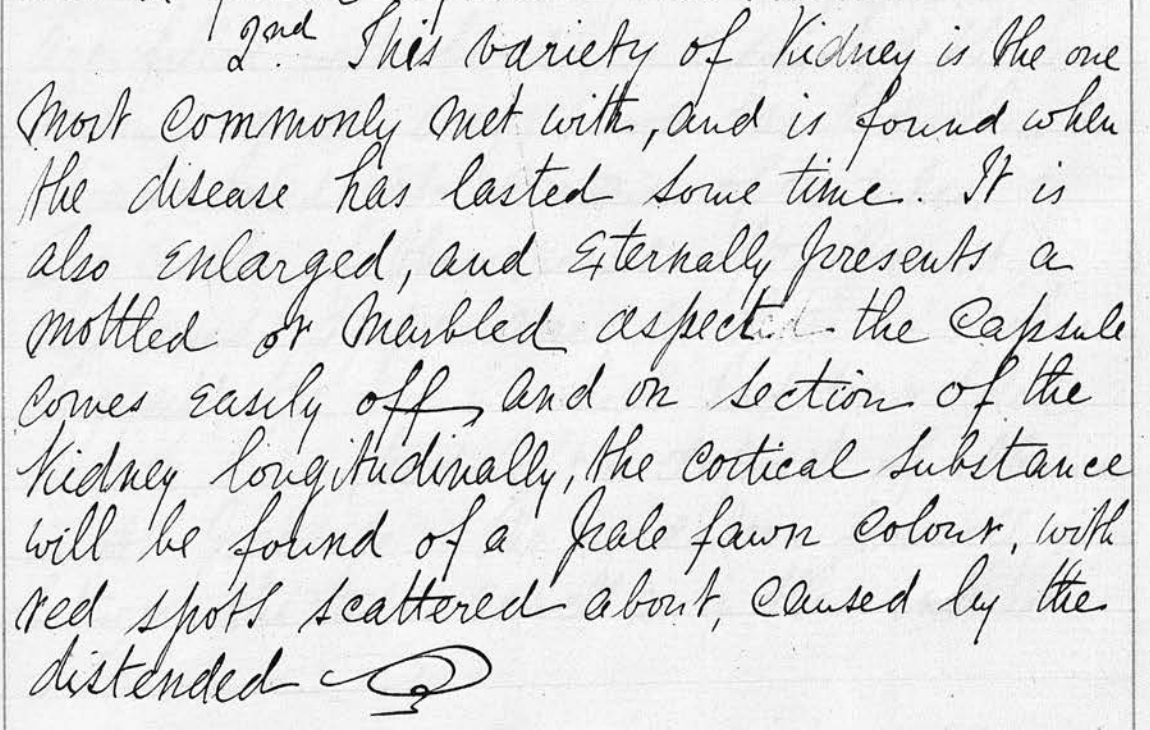 2nd. This variety of Kidney is the one
most commonly met with, and is found when
the disease has lasted some time. It is
also enlarged, and Eternally presents a
mottled or marbled aspect the Capsule
comes easily off, and on section of the
Kidney longitudinally, the cortical substance
will be found of a pale fawn colour, with
red spots scattered about, caused by the
distended